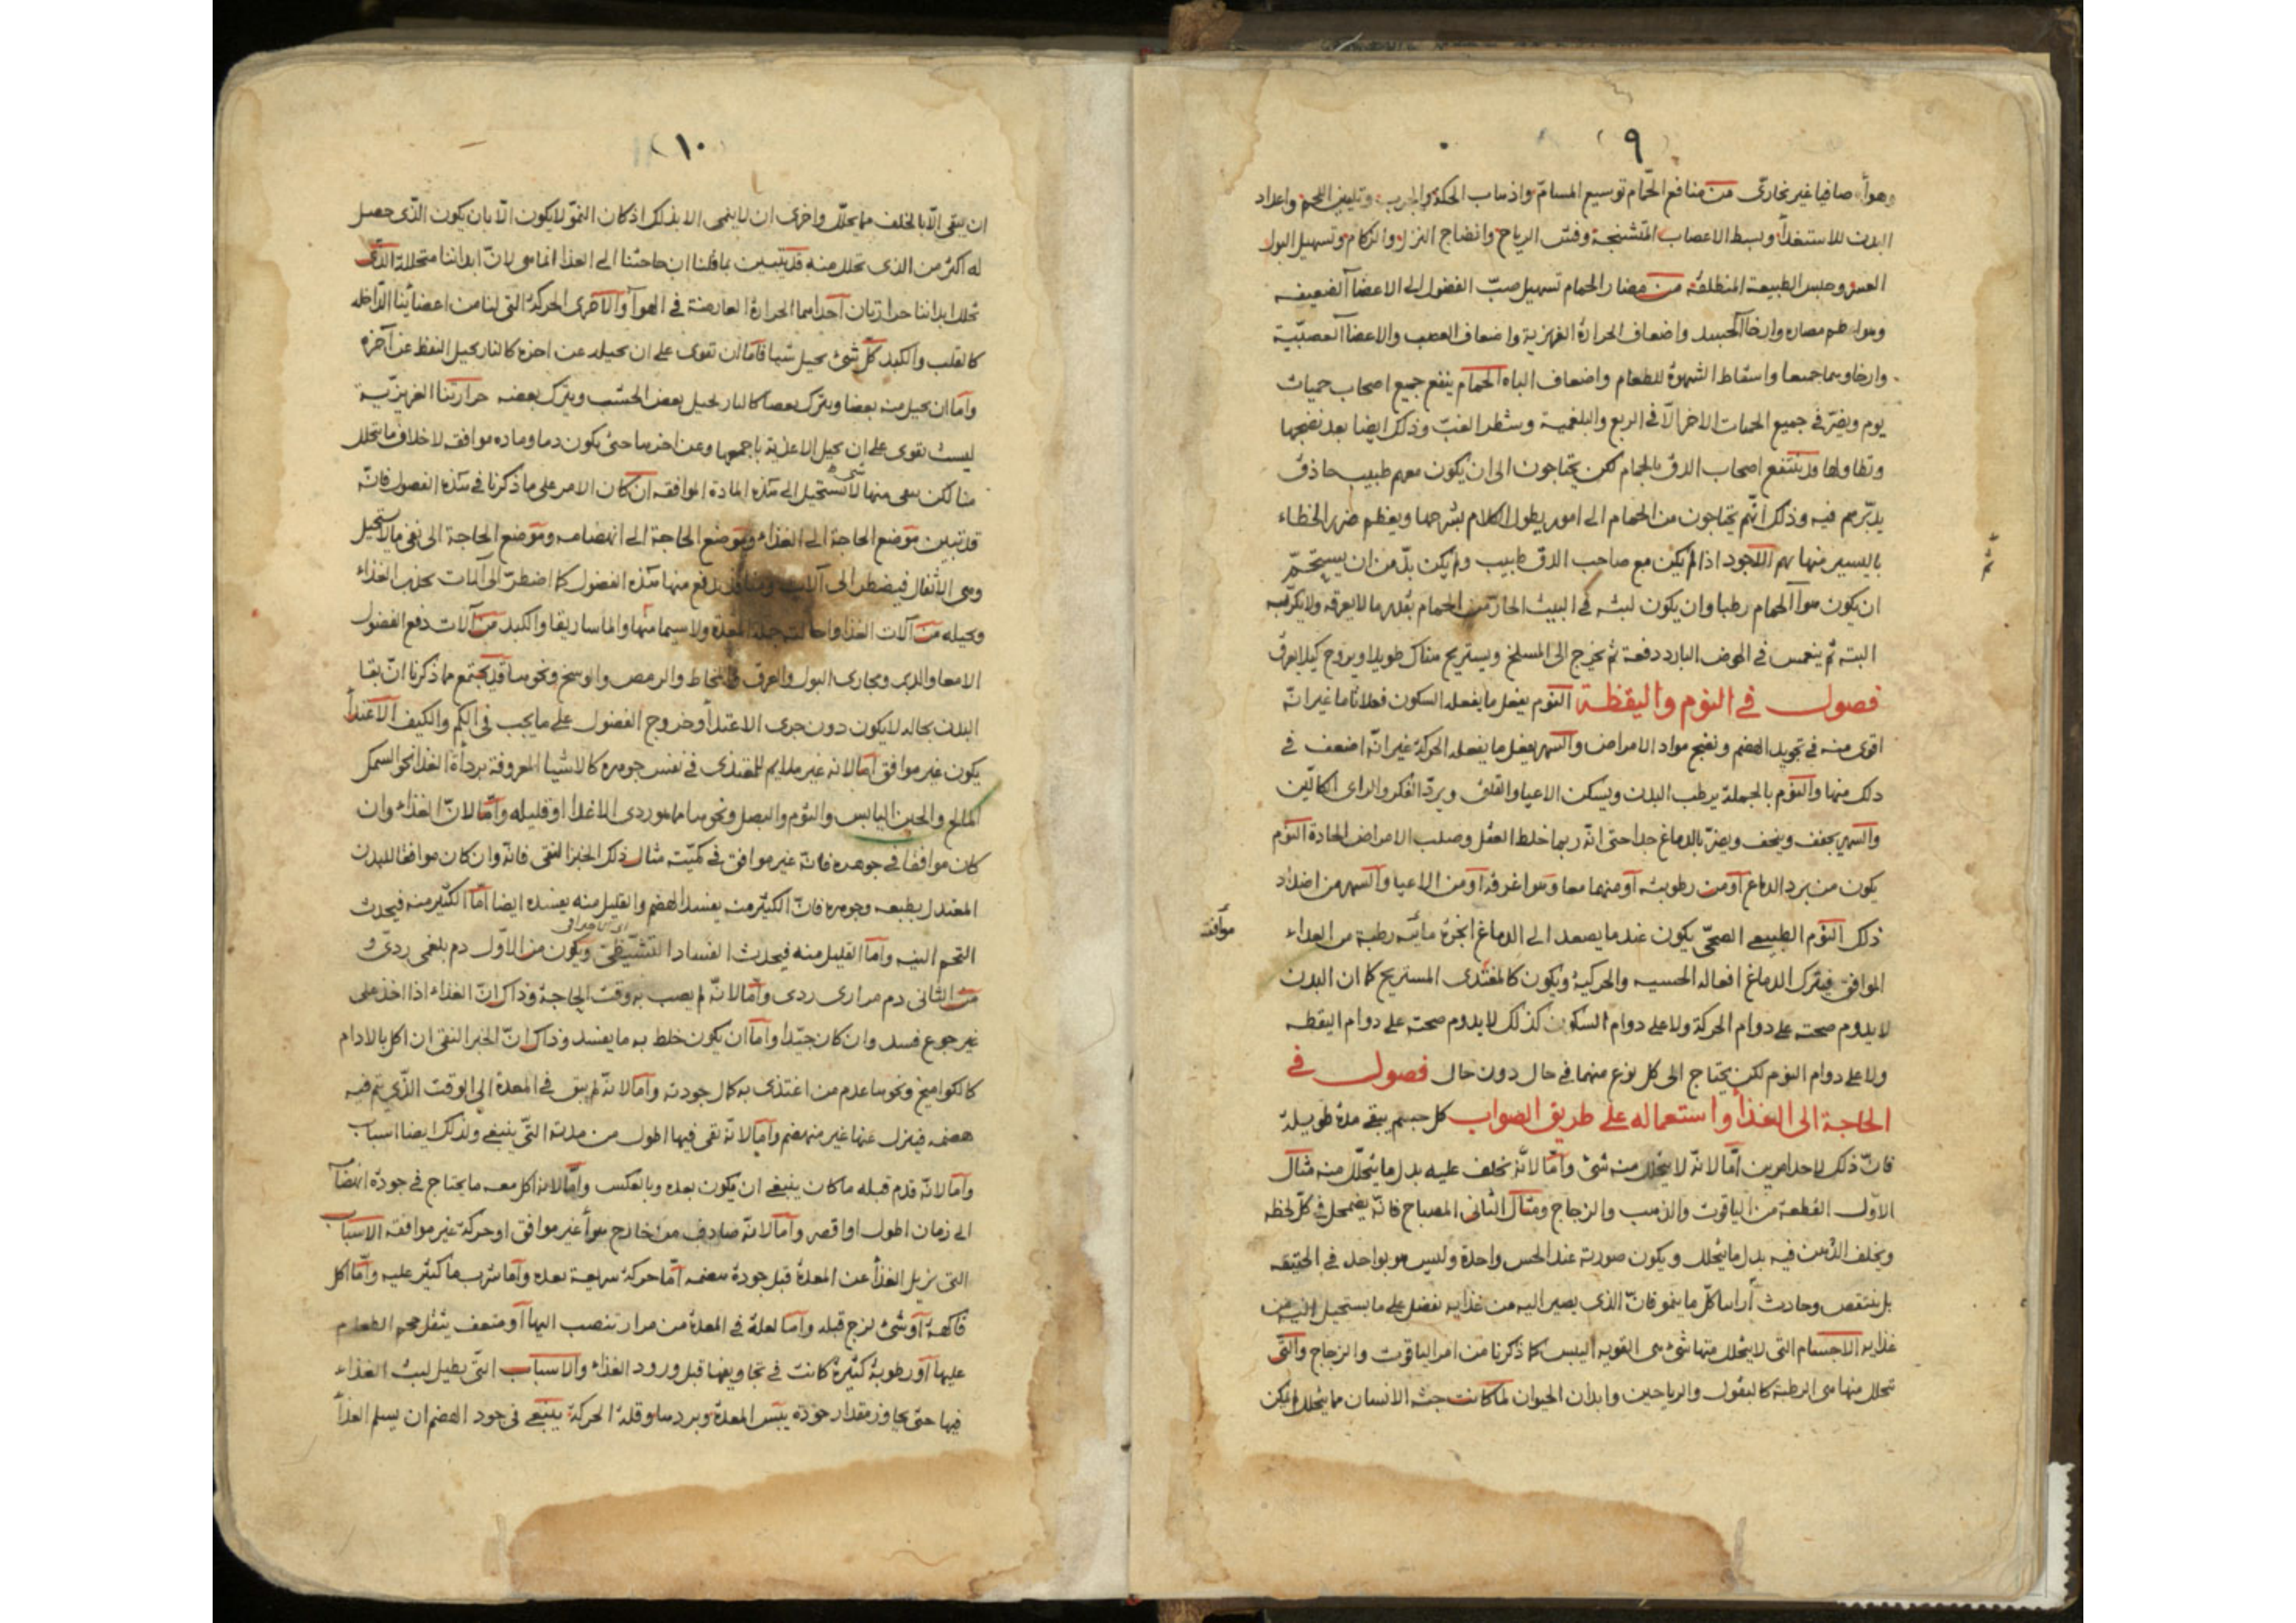 ٩
وهواء صافيا غير بخارى من منافع الحمّام توسيع المسامّ واذهاب الحكة والجرب وتليين اللحم واعداد
البدن للاستغذاء وبسط الاعصاب المتشنجة وفش الرياح وانضاج النزل والزكام وتسهيل البول
العسر وحبس الطبيعة المنطلقة من مضار الحمام تسهيل صبّ الفضول الى الاعضآ الضعيفه
وهو اعظم مضاره وارخآ الجسد واضعاف الحرارة الغريزية واضعاف العصب والاعضآ العصبّية
وارخاوهما جميعا واسقاط الشهوة للطعام واضعاف الباه الحمام ينفع جميع اصحاب حميات
يوم ويضرّ فى جميع الحميات الاخر الّا فى الربع والبلغمية وشطر الغبّ وذلك ايضا بعد نضجها
وتطاولها وقد ينتفع اصحاب الدق بالحمام لكن يحتاجون الى ان يكون معهم طبيب حاذق
يدبّرهم فيه وذلك انّهم يحتاجون من الحمام الى امور يطول الكلام بشرحها ويعظم ضرر الخطاء
باليسير منها بهم اللاجود اذا لم يكن مع صاحب الدق طبيب ولم يكن بدّ من ان يستحمّ
ثم
ان يكون هوآ الحمام رطبا وان يكون لبثه فى البيت الحارّ من الحمام بقدر ما لا يعرقه ولا يكربه
البته ثم ينغمس فى الحوض البارد دفعة ثم يخرج الى المسلخ ويستريح هناك طويلا ويروح كيلا يعرق
فصول فى النوم واليقظة النوم يفعل ما يفعله السكون فعلا تاما غير انّه
اقوى منه فى تجويد الهضم ونضج مواد الامراض والسهر يفعل ما يفعله الحركة غير انّه اضعف فى
ذلك منها والنوم بالجملة يرطب البدن ويسكن الاعيا والقلق ويردّ الفكر والراى الكالّين
والسهر يجفف وينحف ويضرّ بالدماغ جدا حتى انّه ربما خلط العقل وصلب الامراض الحادة النوم
يكون من برد الدماغ او من رطوبته او منهما معا وهو اغرقه او من الاعيا والسهر من اضداد
ذلك النوم الطبيعى الصحّى يكون عندما يصعد الى الدماغ ابخرة مائيّه رطبة من الغذاء
موافق
الموافق فيترك الدماغ افعاله الحسيه والحركية ويكون كالمغتذى المستريح كما ان البدن
لا يدوم صحته على دوام الحركة ولا على دوام السكون كذلك لا يدوم صحته على دوام اليقظه
ولا على دوام النوم لكن يحتاج الى كل نوع منهما فى حال دون حال فصول فى
الحاجة الى الغذآ واستعماله على طريق الصواب كل جسم يبقى مدة طويلة
فانّ ذلك لاحد امرين امّا لانّه لا يتحلل منه شئ وامّا لانّه يخلف عليه بدل ما يتحلّل منه مثال
الاوّل القطعة من الياقوت والذهب والزجاج ومثال الثانى المصباح فانّه يضمحل فى كلّ لحظه
ويخلف الدّهن فيه بدل ما يتحلل ويكون صورته عند الحس واحدة وليس هو بواحد فى الحقيقه
بل ينتقص وحادث ابدا كلّ ما ينمو فانّ الذى يصير اليه من غذايه يفضل على ما يستحيل اليه من
غذايه الاجسام التى لا يتحلل منها شئ هى القويه اليبس كما ذكرنا من امر الياقوت والزجاج والتى
تتحلل منها هى الرطبة كالبقول والرياحين وابدان الحيوان لما كانت جثه الانسان مما يتحلل لم يكن
١٠
ان يبقى الّا بالخلف مما يتحلّل واخرى ان لا ينمى الا بذلك اذ كان النموّ لا يكون الّا بان يكون الّذى حصل
له اكثر من الذى تحلل منه قد تبين بما قلنا ان حاجتنا الى الغذا انما هى لانّ ابداننا متحللة الذى
تحلل ابداننا حرارتان احداهما الحرارة العارضة فى الهوآ والاخرى الحركة التى لنا من اعضائنا الدّاخله
كالقلب والكبد كلّ شئ يحيل شيا فامّا ان تقوى على ان يحيله عن اخره كالنار يحيل النفط عن آخره
وامّا ان يحيل منه بعضا ويترك بعضا كالنار تحيل بعض الخشب ويترك بعضه حرارتنا الغريزّية
ليست تقوى على ان تحيل الاغذية باجمعها وعن اخرها حتى يكون دما ومادة موافقه لاخلاف ما يتحلل
منا لكن يبقى منها شئ لا يستحيل الى هذه المادة الموافقه ان كان الامر على ما ذكرنا فى هذه الفصول فانّه
قد تبين موضع الحاجة الى الغذاء وموضع الحاجة الى انهضامه وموضع الحاجة الى نفى ما لا يستحيل
وهى الاثفال فيضطر الى آلات ومنافذ يدفع منها هذه الفضول كما اضطرّ الى آلات تجذب الغذاء
ويحيله من آلات الغذا واحالته جملة المعدة ولا سيما فمّها والماساريقا والكبد من آلات دفع الفضول
الامعا والدبر ومجارى البول والعرق والمخاط والرمص والوسخ ونحوها قد يجتمع مما ذكرنا انّ بقا
البدن بحاله لا يكون دون جرى الاغتذآ وخروج الفضول على ما يجب فى الكم والكيف الاغتذآ
يكون غير موافق امّا لانه غير ملايم للمغتذى فى نفس جوهره كالاشيا المعروفة بردأة الغذا نحو السمك
المالح والجبن اليابس والثوم والبصل ونحوها مما هو ردى الاغذا او قليله وامّا لانّ الغذاء وان
كان موافقا فى جوهره فانّه غير موافق فى كميّته مثال ذلك الخبز النقى فانّه وان كان موافقا للبدن
المعتدل بطبعه وجوهره فانّ الكثير منه يفسد الهضم والقليل منه يفسده ايضا امّا الكثير منه فيحدث
التخم النيه وامّا القليل منه فيحدث الفساد التشيّطى ويكون من الاوّل دم بلغمى ردىّ و
من الثانى دم مرارى ردى وامّا لانّه لم يصب به وقت الحاجة وذاك انّ الغذاء اذا اخذ على
غير جوع فسد وان كان جيّدا وامّا ان يكون خلط به ما يفسد وذاك انّ الخبز النقى ان اكل بالادام
كالكواميخ ونحوها عدم من اغتذى به كمال جودته وامّا لانّه لم يبق فى المعدة الى الوقت الّذى يتم فيه
هضمه فينزل عنها غير منهضم وامّا لانّه بقى فيها اطول من مدته التى ينبغى ولذلك ايضا اسباب
وامّا لانّه قدم قبله ما كان ينبغى ان يكون بعده وبالعكس وامّا لانه اكل معه ما يحتاج فى جودة انهضآ
الى زمان اطول او اقصر وامّا لانّه صادف من خارج هوآ غير موافق او حركة غير موافقة الاسباب
التى يزيل الغذآ عن المعدة قبل جودة هضمه امّا حركة سريعة بعده وامّا شرب ما كثير عليه وامّا اكل
فاكهة او شئ لزج قبله وامّا لعلة فى المعدة من مرار تنصب اليها او ضعف يثقل حجم الطعام
عليها او رطوبة كثيرة كانت فى تجاويفها قبل ورود الغذاء والاسباب التى يطيل لبث الغذاء
فيها حتى يجاوز مقدار جودة يبس المعدة وبردها وقلة الحركة ينبغى فى جود الهضم ان يسلم الغذآ